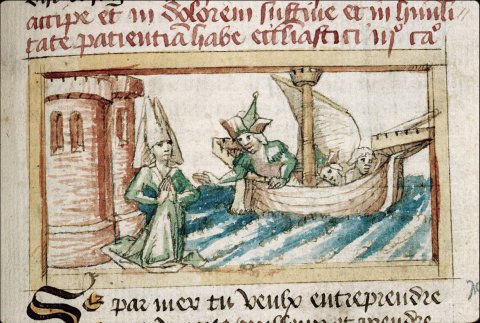 accipe et in dolorem sustine et in humili
tate patientiā habe eccliastici iiº caº
Se par mer tu veulx entreprendre